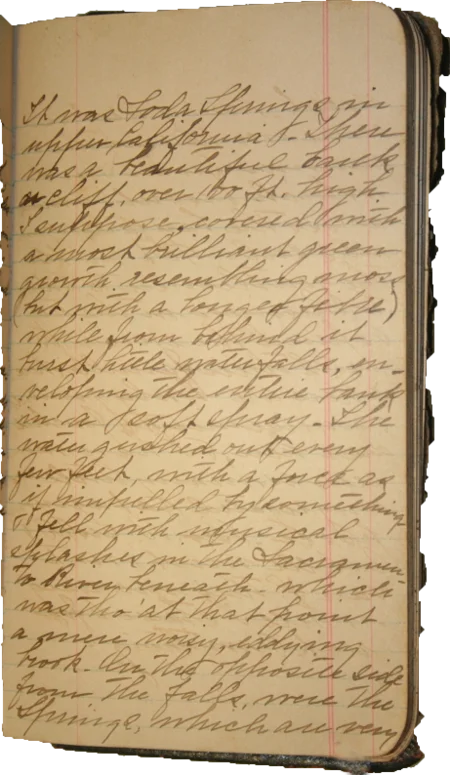 It was Soda Springs in
upper California. There
was a beautiful bank
or cliff, over 100 ft. high
I suppose, covered with
a most brilliant green
growth resembling moss
(but with a longer fibre)
while from behind it
burst little waterfalls, en-
veloping the entire bank
in a soft spray. The
water gushed out every
few feet, with a force as
if impelled by something
& fell with musical
splashes in the Sacramen-
to River beneath. which
was tho at that point
a mere noisy, eddying
brook. On the opposite side
from the falls, were the
Springs, which are very